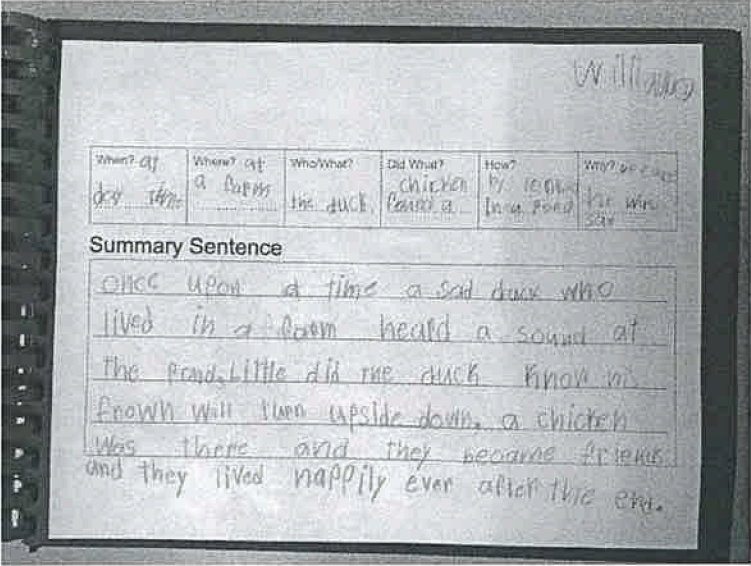 William
When? at Where? at Who/What? Did What? How? Why?
day time a farm the duck chicken found a by In a Pond the was
Summary Sentence
once upon a time a sad duck who
lived in a farm heard a sound at
the Pond. Little did the duck know his
frown will turn upside down. a chicken
was there and they became friends
and they lived happily ever after the end.